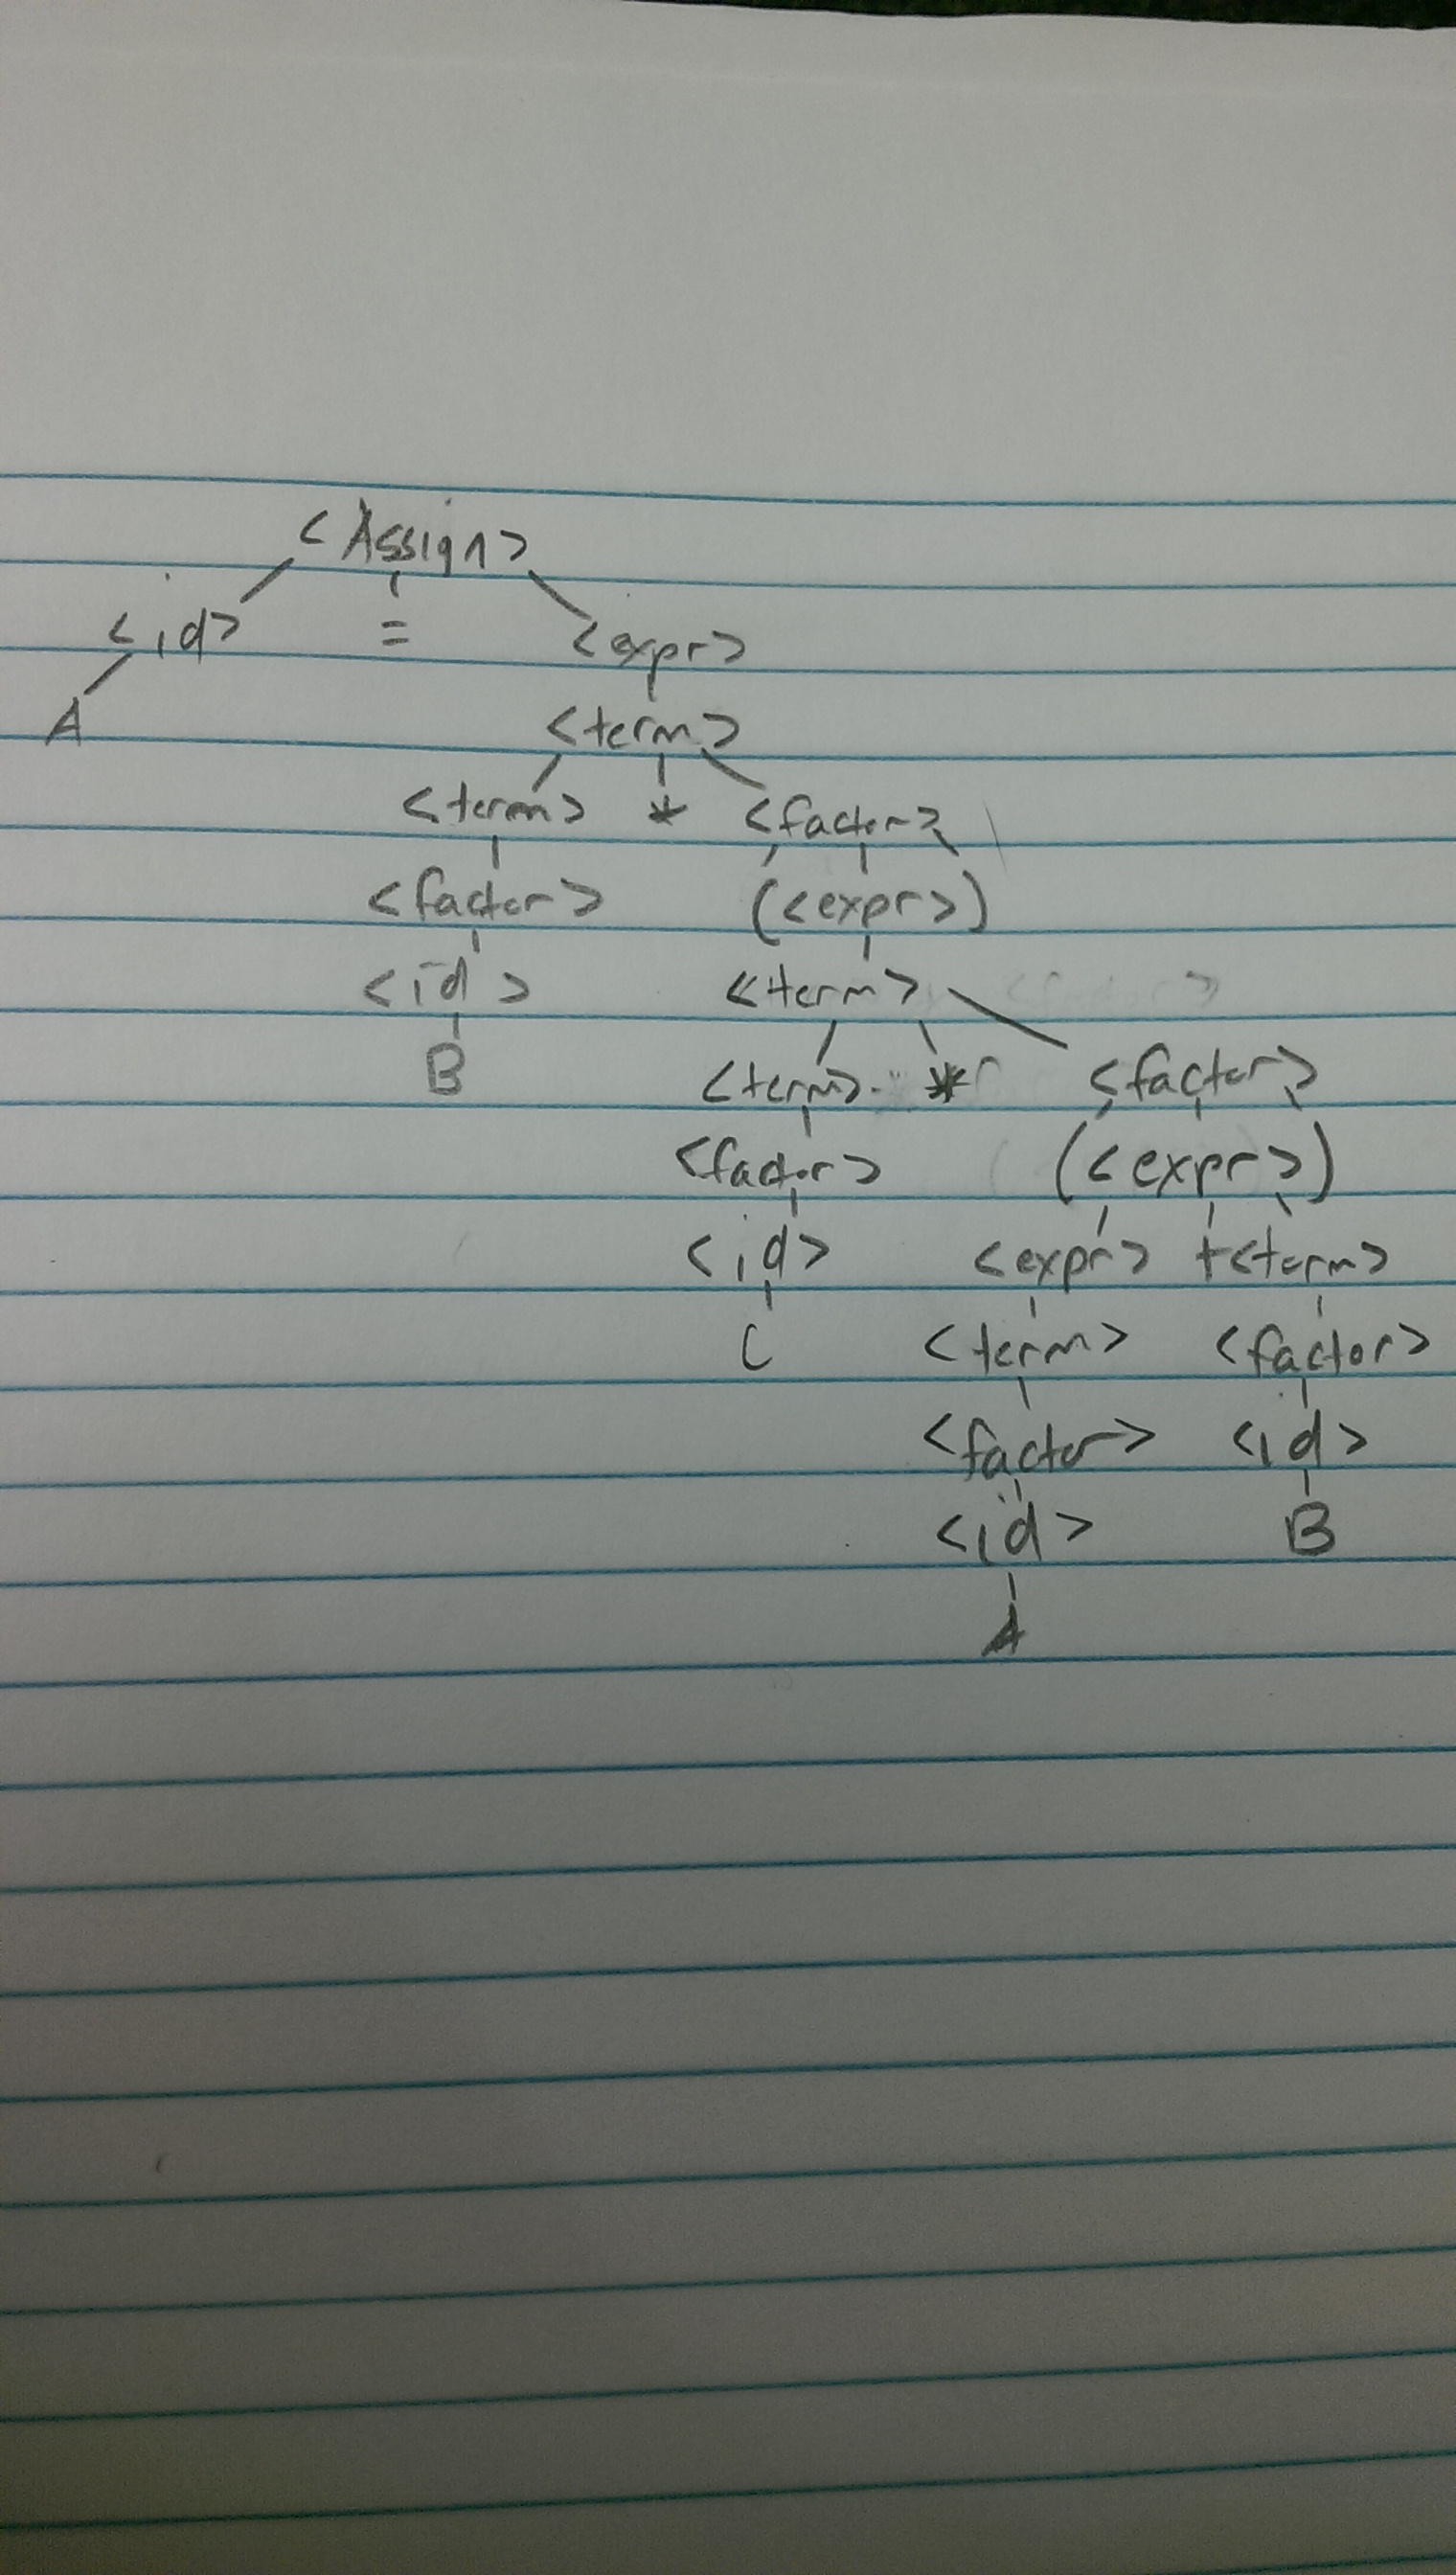 <Assign>
<id> = <expr>
A <term>
<term> * <factor>
<factor> (<expr>)
<id> <term>
B <term> * <factor>
<factor> (<expr>)
<id> <expr> + <term>
C <term> <factor>
<factor> <id>
<id> B
A